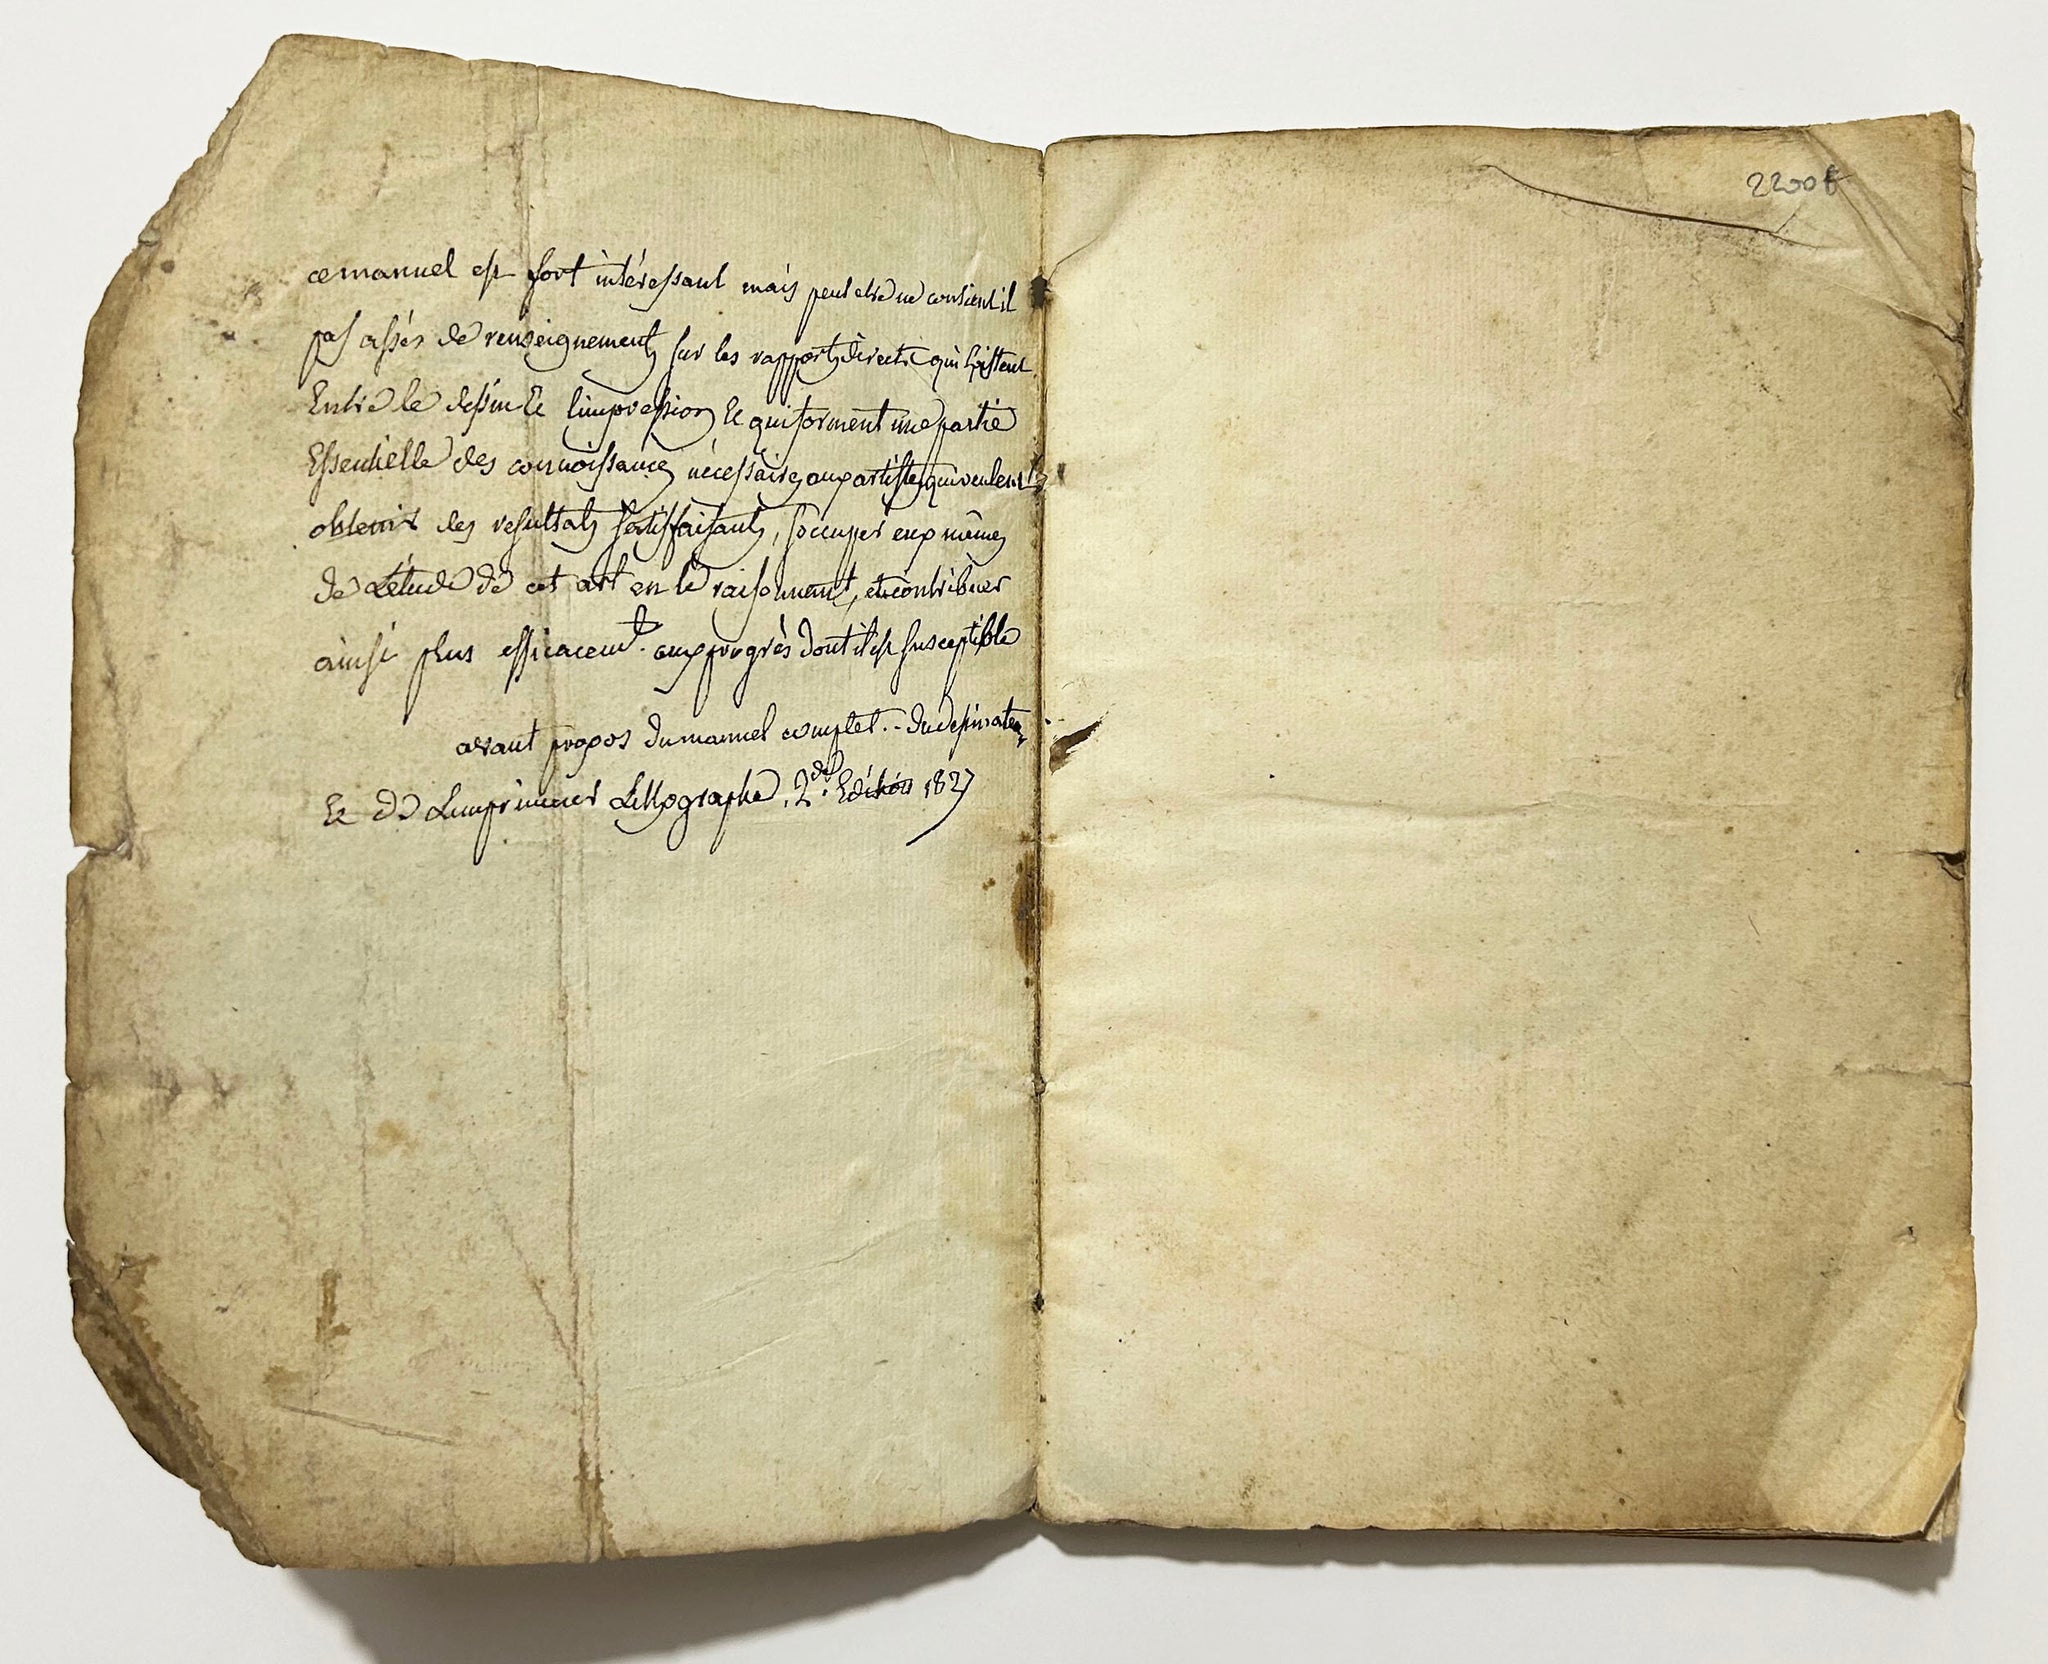 ce manuel est fort intéressant mais peut etre ne contient il
pas assés de renseignements sur les rapports directs qui Existent
Entre le dessin Et l'impression Et qui forment une partie
Essentielle des connoissances nécessaires aux artistes qui veulent
obtenir des resultats satisfaisants, s'occuper eux mêmes
de L'étude de cet art en le raisonnant, et contribuer
ainsi plus efficacemt. aux progrès dont il est susceptible
avant propos du manuel complet .- du dessinateur
Et de L'imprimeur Lithographe. 2de. Edition 1827
2200 F